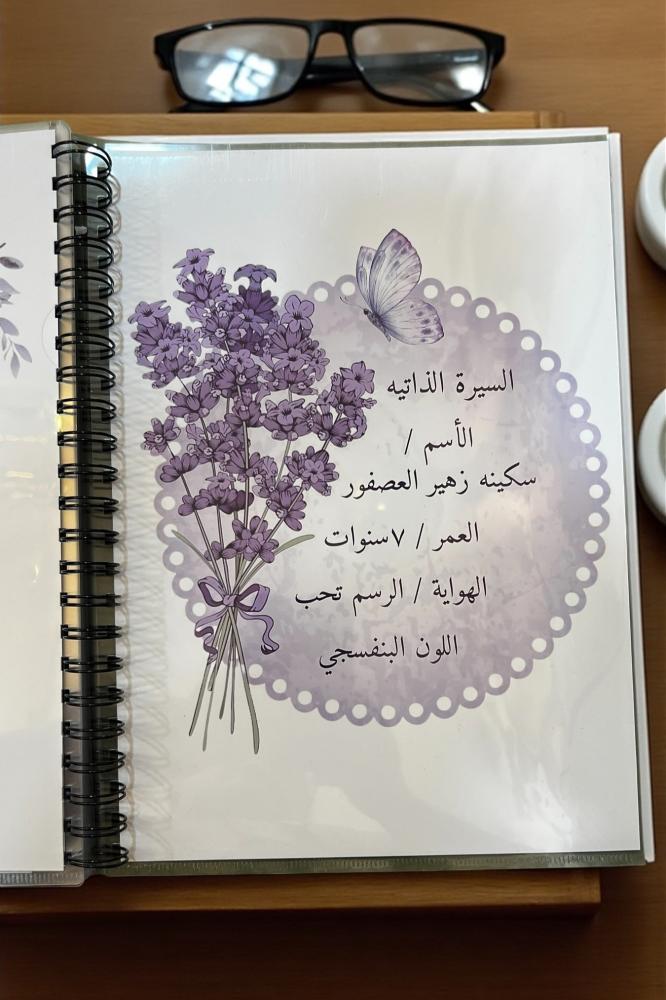 السيرة الذاتيه
الأسم /
سكينه زهير العصفور
العمر / ٧سنوات
الهواية / الرسم تحب
اللون البنفسجي